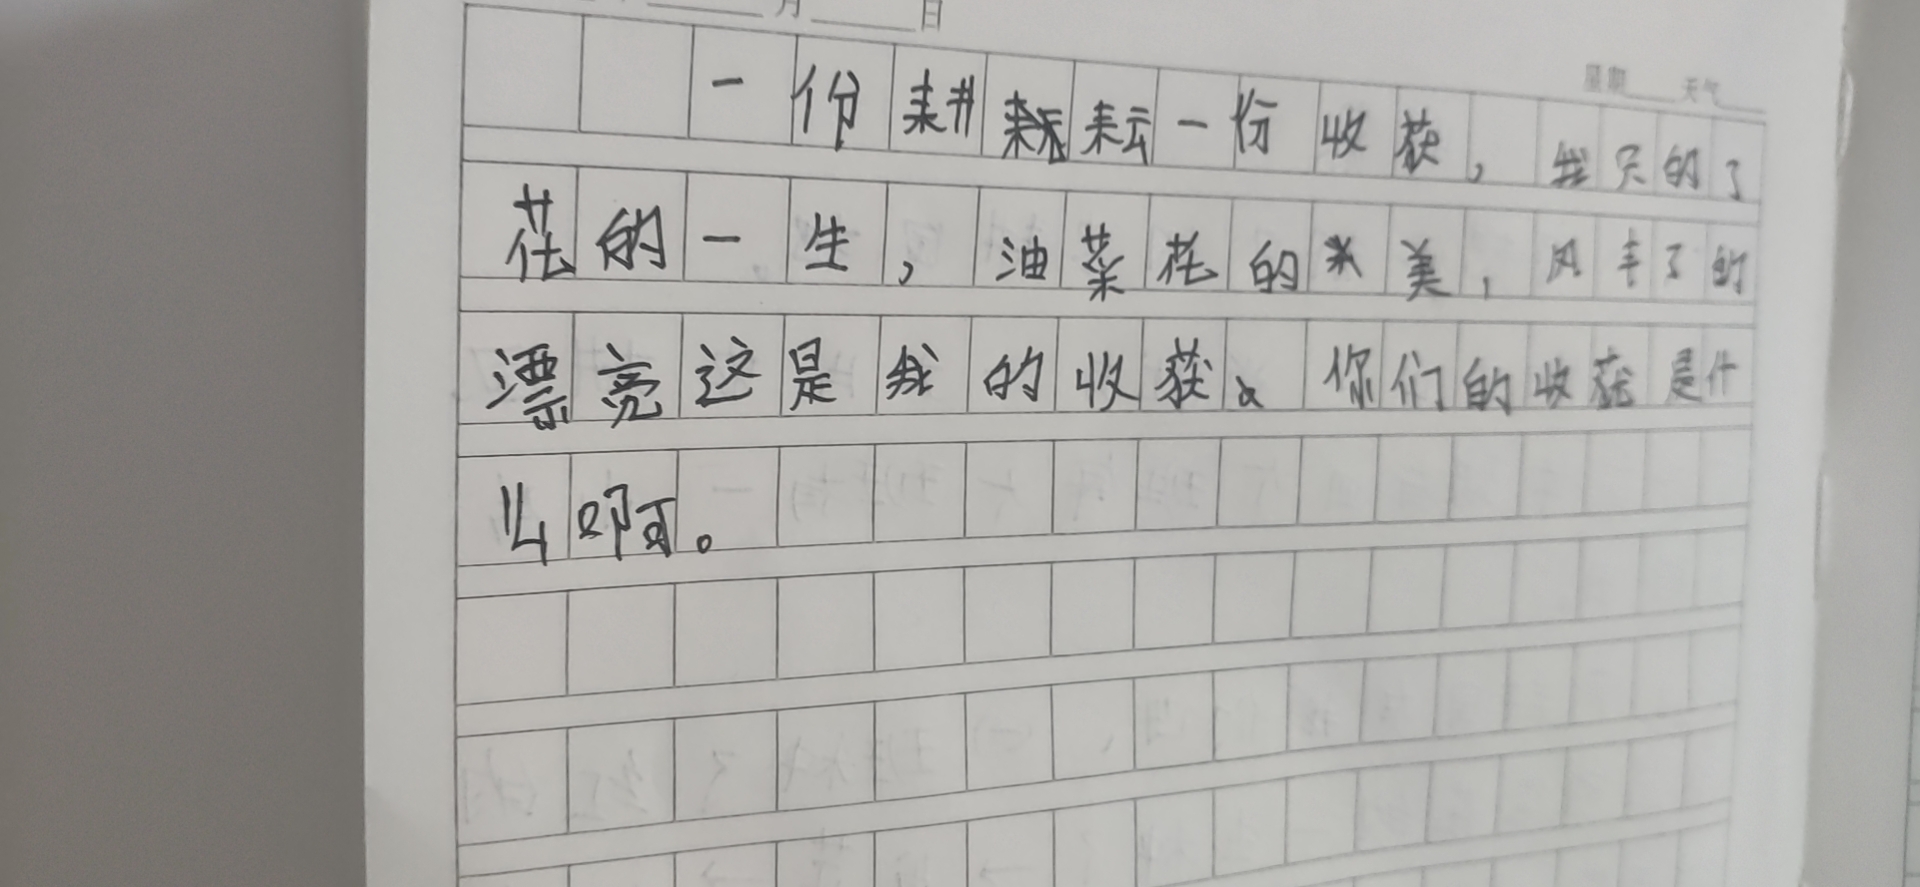 月 日
星期 天气
一份耕耘一份收获，我只的了
花的一生，油菜花的美，风丰了的
漂亮这是我的收获。你们的收获是什
么啊。